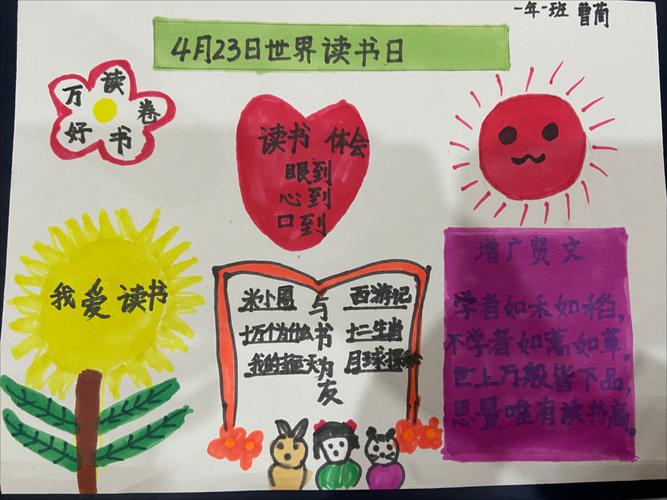 一年一班 曹蕳
4月23日世界读书日
万读卷
好书
读书 体会
眼到
心到
口到
我爱读书
米小圈
十万个为什么
西游记
十二生肖
月球探
与书为友
增广贤文
学者如禾如稻，
不学者如蒿如草。
世上万般皆下品，
思量唯有读书高。